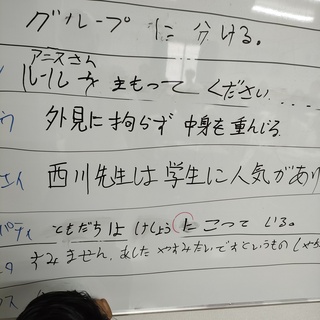 グループに分ける。
アニスさん
ルールをまもってください....
ウ 外見に拘らず中身を重んじる
エイ 西川先生は学生に人気があり
パティ ともだちはけしょうにこっている。
タ すみません、あしたやすみたいですというもの
ス